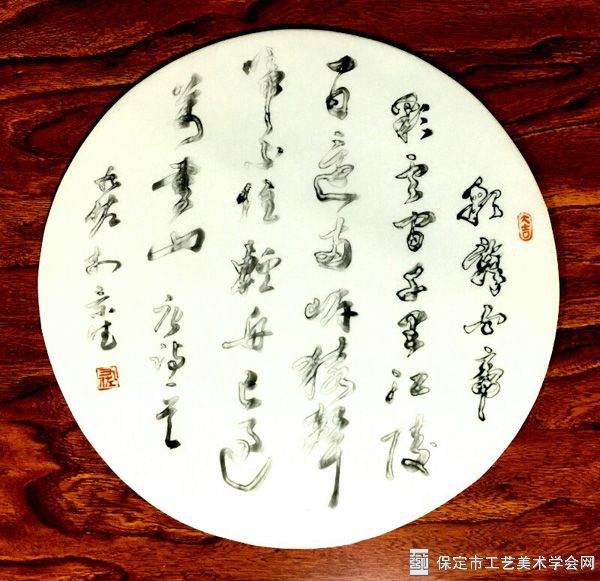 朝辭白帝
彩云间千里江陵
一日還兩岸猿聲
啼不住輕舟已过
萬重山 唐诗一首
大吉
保定市工艺美术学会网